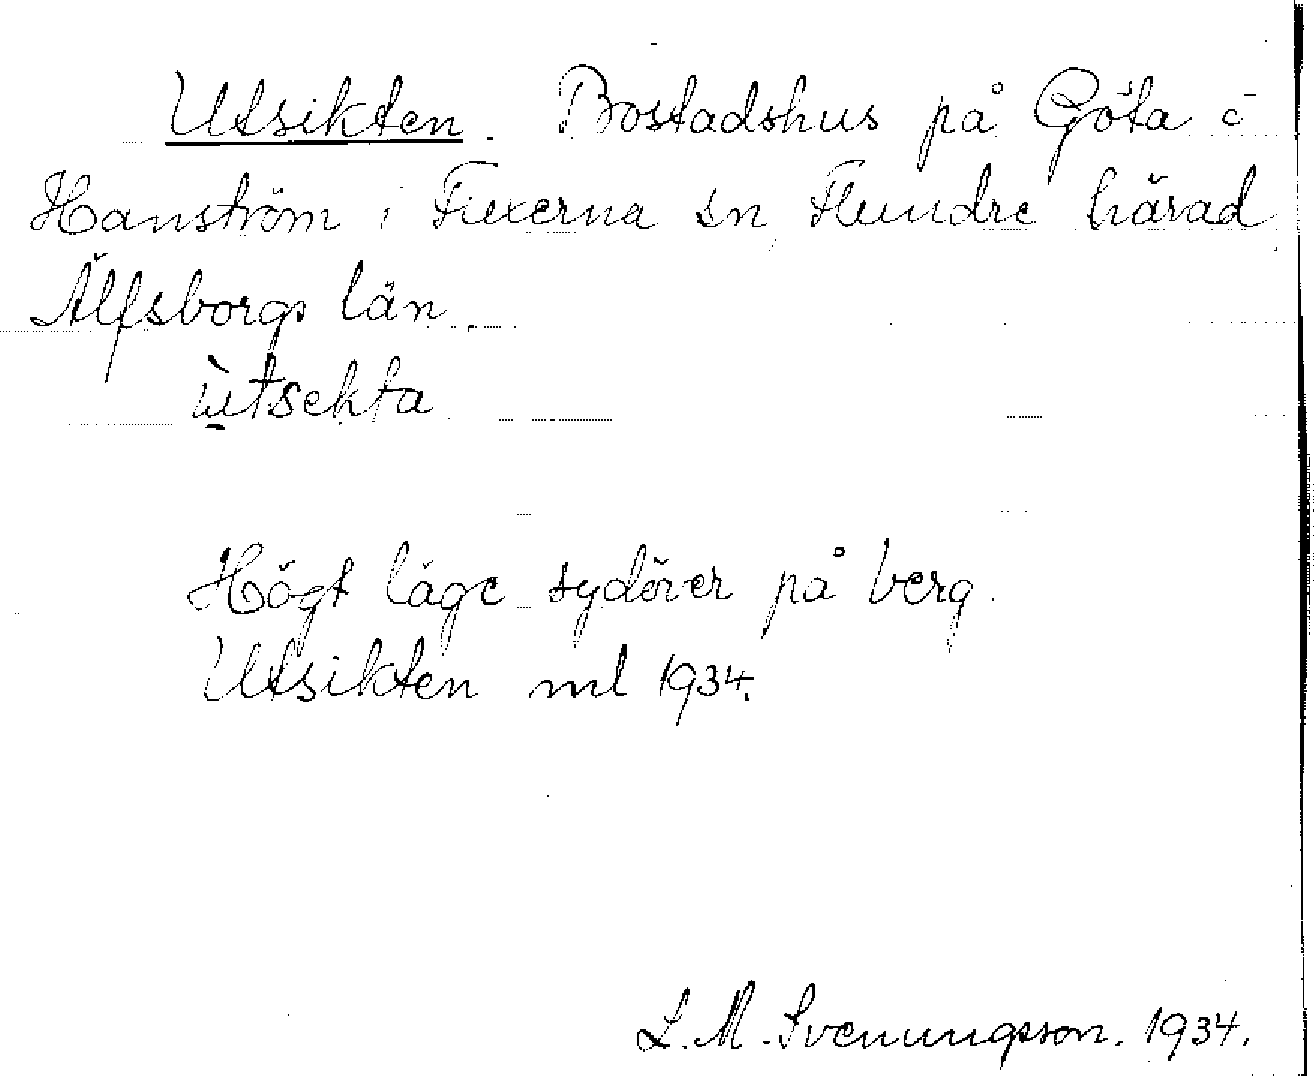 Utsikten. Bostadshus på Göta å
Hanström i Fuxerna sn, Flundre härad,
Älfsborgs län.
ùtsekta
Högt läge sydöver på berg.
Utsikten ml 1934.
L. M. Svenungsson. 1934.